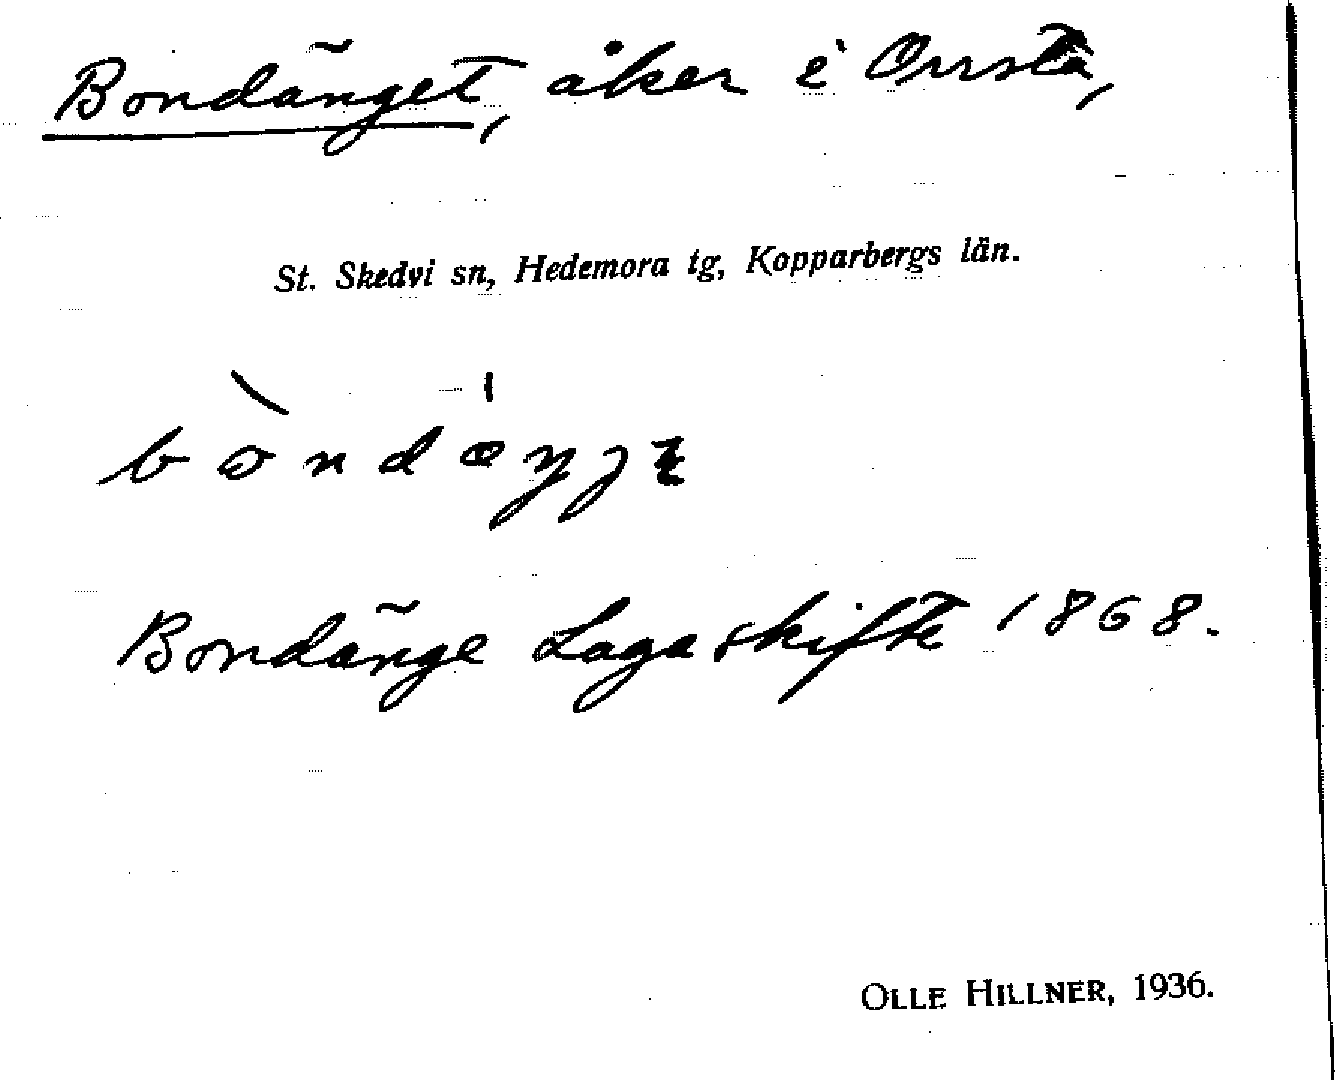 Bondänget, åker i Orrsta,
St. Skedvi sn, Hedemora tg, Kopparbergs län.
Bondänge Laga skifte 1868.
OLLE HILLNER, 1936.